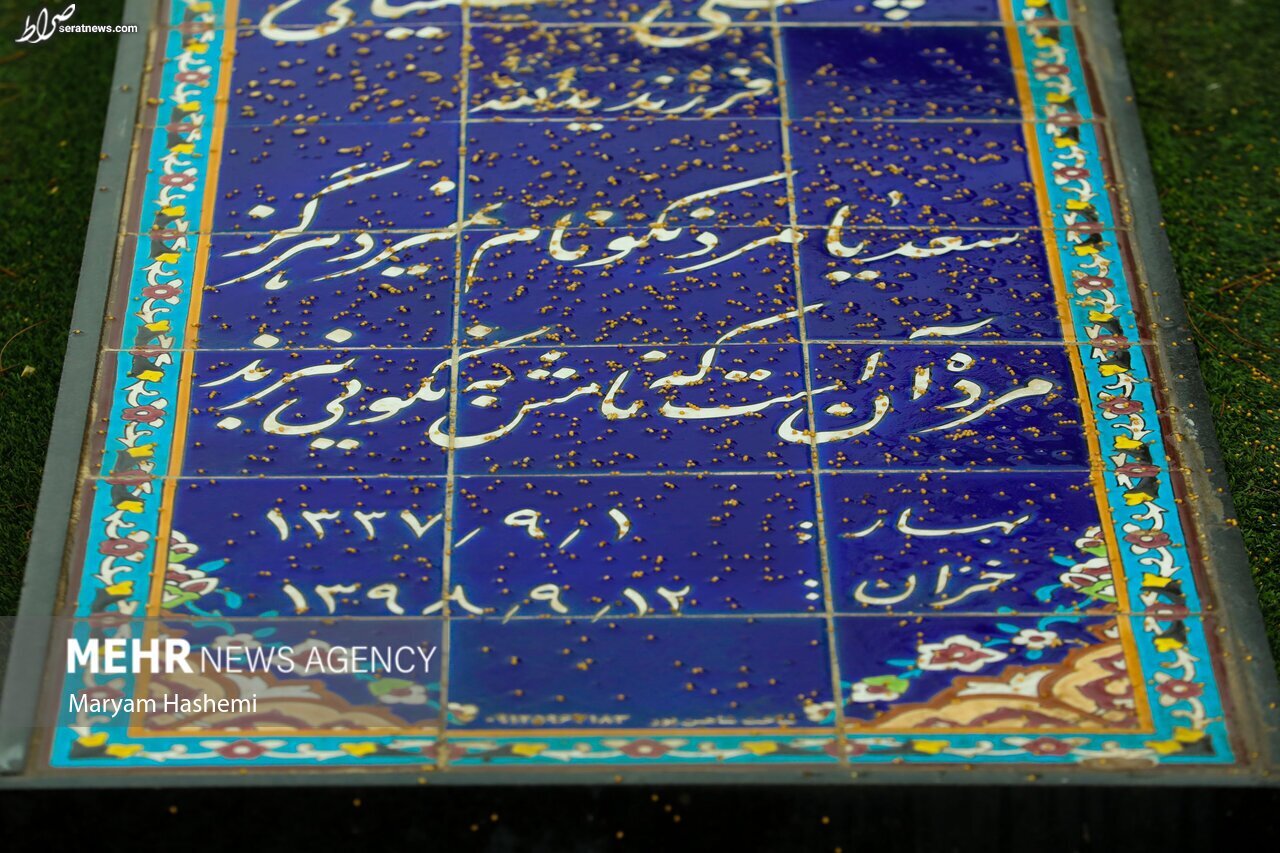 صراط
seratnews.com
فرزند یدالله
سعدیا مرد نکونام نمیرد هرگز
مرده آن است که نامش به نکویی نبرند
بهار : ۱٫۹٫۱۳۳۷
خزان : ۱۲٫۹٫۱۳۹۸
MEHR NEWS AGENCY
Maryam Hashemi